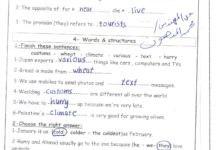 2. The opposite of: far × near die × live
3. The pronoun (they) refers to tourists
4- Words & structures
1-Finish these sentences:
customs - wheat - climate - various - text - hurry
1-Japan exports various things like cars, computers and TVs
2-Bread is made from wheat
3-We use mobile phones to send photos and text messages
4-Wedding customs are different all over the world
5-We have to hurry up because we're very late.
6-Palestine's climate is very good for growing olives.
2- Choose the right answer:
1-January is as (cold - colder - the coldest) as February.
2-Hany and Ahmed usually go to the sea because (they